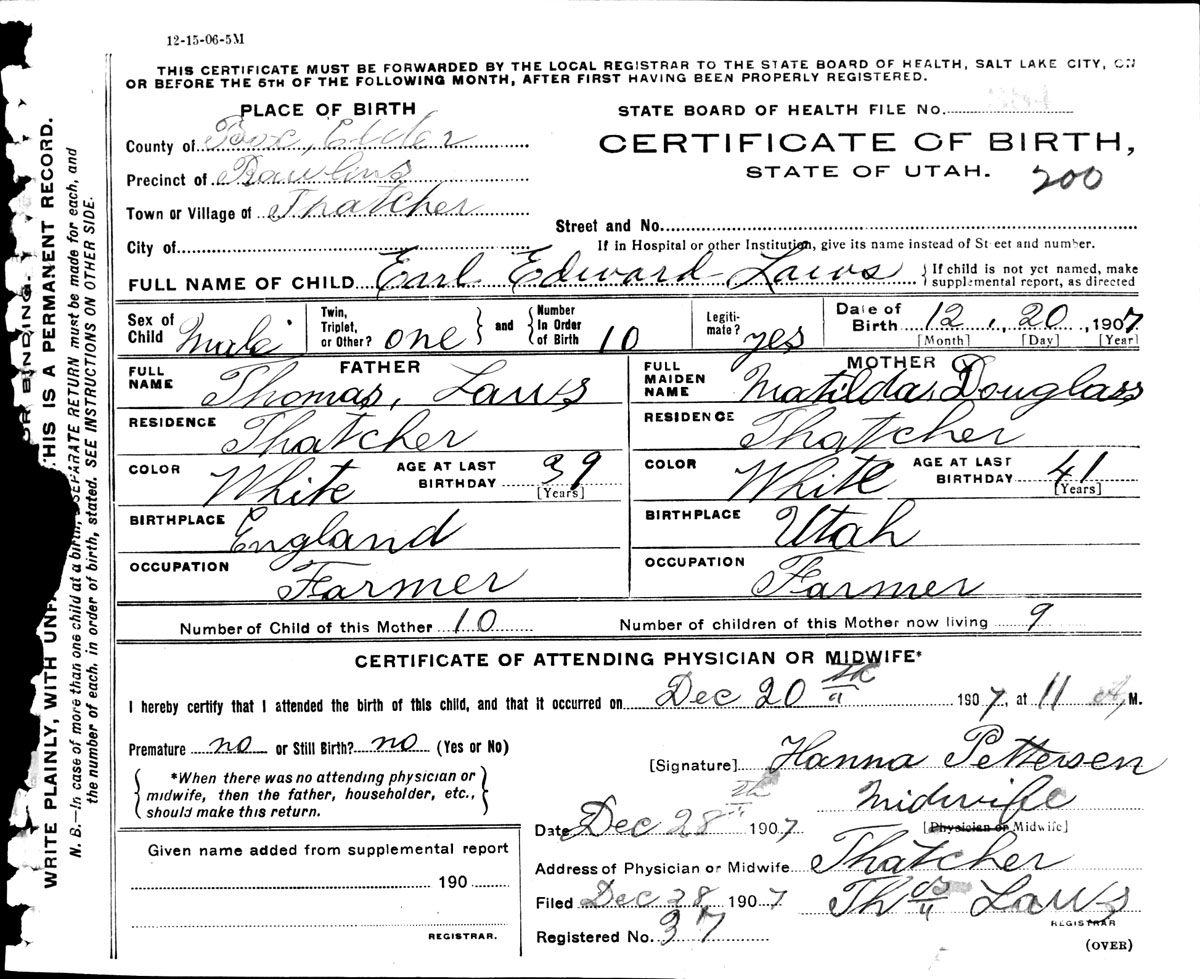 12-15-06-5M
THIS CERTIFICATE MUST BE FORWARDED BY THE LOCAL REGISTRAR TO THE STATE BOARD OF HEALTH, SALT LAKE CITY, ON
OR BEFORE THE 5TH OF THE FOLLOWING MONTH, AFTER FIRST HAVING BEEN PROPERLY REGISTERED.
PLACE OF BIRTH
STATE BOARD OF HEALTH FILE No.
County of Box, Elder
CERTIFICATE OF BIRTH,
STATE OF UTAH.
200
Precinct of Rawlins
Town or Village of Thatcher
Street and No.
City of
If in Hospital or other Institution, give its name instead of Street and number.
FULL NAME OF CHILD Earl Edward Laws
{ If child is not yet named, make
supplemental report, as directed
Sex of Child Male
Twin, Triplet, or Other? one } and { Number In Order of Birth 10
Legitimate? yes
Date of Birth 12, 20, 1907
[Month] [Day] [Year]
FATHER
FULL NAME Thomas, Laws
RESIDENCE Thatcher
COLOR White AGE AT LAST BIRTHDAY 39
[Years]
BIRTHPLACE England
OCCUPATION Farmer
MOTHER
FULL MAIDEN NAME Matilda, Douglass
RESIDENCE Thatcher
COLOR White AGE AT LAST BIRTHDAY 41
[Years]
BIRTHPLACE Utah
OCCUPATION Farmer
Number of Child of this Mother 10 Number of children of this Mother now living 9
CERTIFICATE OF ATTENDING PHYSICIAN OR MIDWIFE*
I hereby certify that I attended the birth of this child, and that it occurred on Dec 20th 1907, at 11 M.
Premature no or Still Birth? no (Yes or No)
{ *When there was no attending physician or
midwife, then the father, householder, etc.,
should make this return. }
[Signature] Hanna Pettersen
Midwife
[Physician or Midwife]
Date Dec 28th 1907
Given name added from supplemental report
190
REGISTRAR.
Address of Physician or Midwife Thatcher
Filed Dec 28 1907 Thos Laws
REGISTRAR
Registered No. 37
(OVER)
WRITE PLAINLY, WITH THIS IS A PERMANENT RECORD.
N. B.—In case of more than one child at a birth, SEPARATE RETURN must be made for each, and
the number of each, in order of birth, stated. SEE INSTRUCTIONS ON OTHER SIDE.